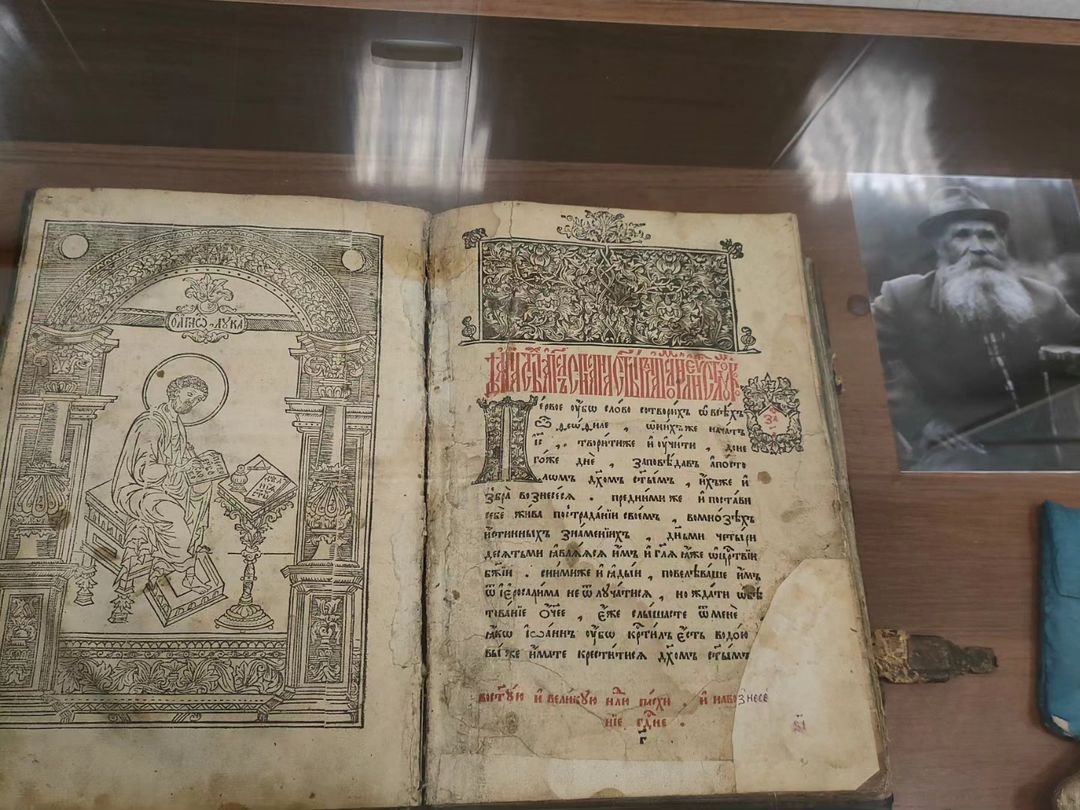 ОАГІѠ ЛУКА
Первое оубѡ слово сотворихъ ѡ всѣхъ
ѽ ѳеѡфиле , ѡнихъже начатъ
і҃с , творитиже и оучити , доне
гоже дн҃е , заповѣдавъ апосто
ломъ дх҃омъ ст҃ымъ , ихъже и
збра вознесесѧ . предними же и постави
себе жива пострадании своемъ , вомнозѣхъ
истинныхъ знаменіихъ , дн҃ьми четыри
десѧтьми ꙗвлѧѧсѧ имъ и гл҃ѧ ꙗже ѡ црⷭ҇твіи
бж҃іи . снимиже и ꙗдыи , повелѣваше имъ
ѿ іеросалима не ѿлучатисѧ , но ждати ѡбѣ
тованіе ѻч҃ее , еже слышасте ѿ мене
ꙗко іѡаннъ оубѡ крⷭ҇тилъ есть водою
вы же имате креститисѧ дх҃омъ ст҃ымъ
востꙋю и великую нлⷧ҇и пасхи . и навознесе
ніе гдⷭ҇не .
г